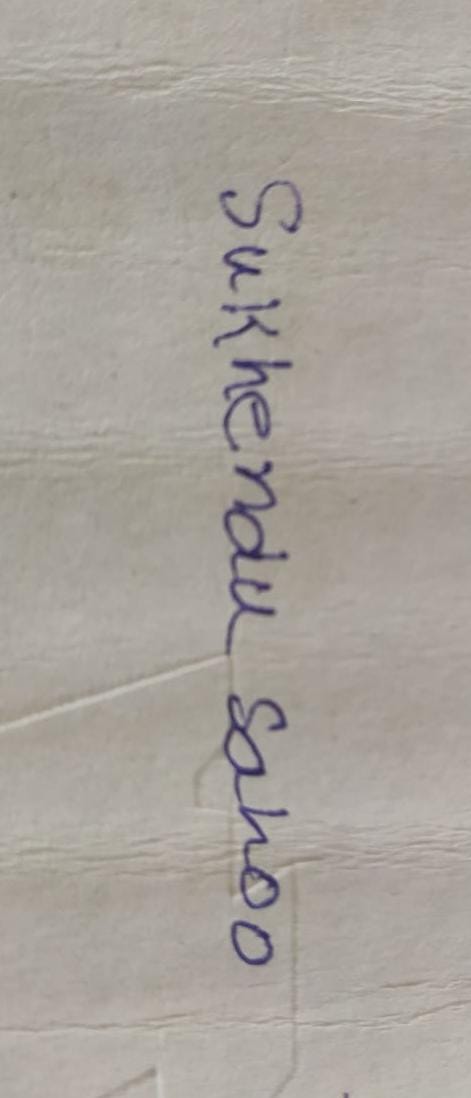 Sukhendu Sahoo